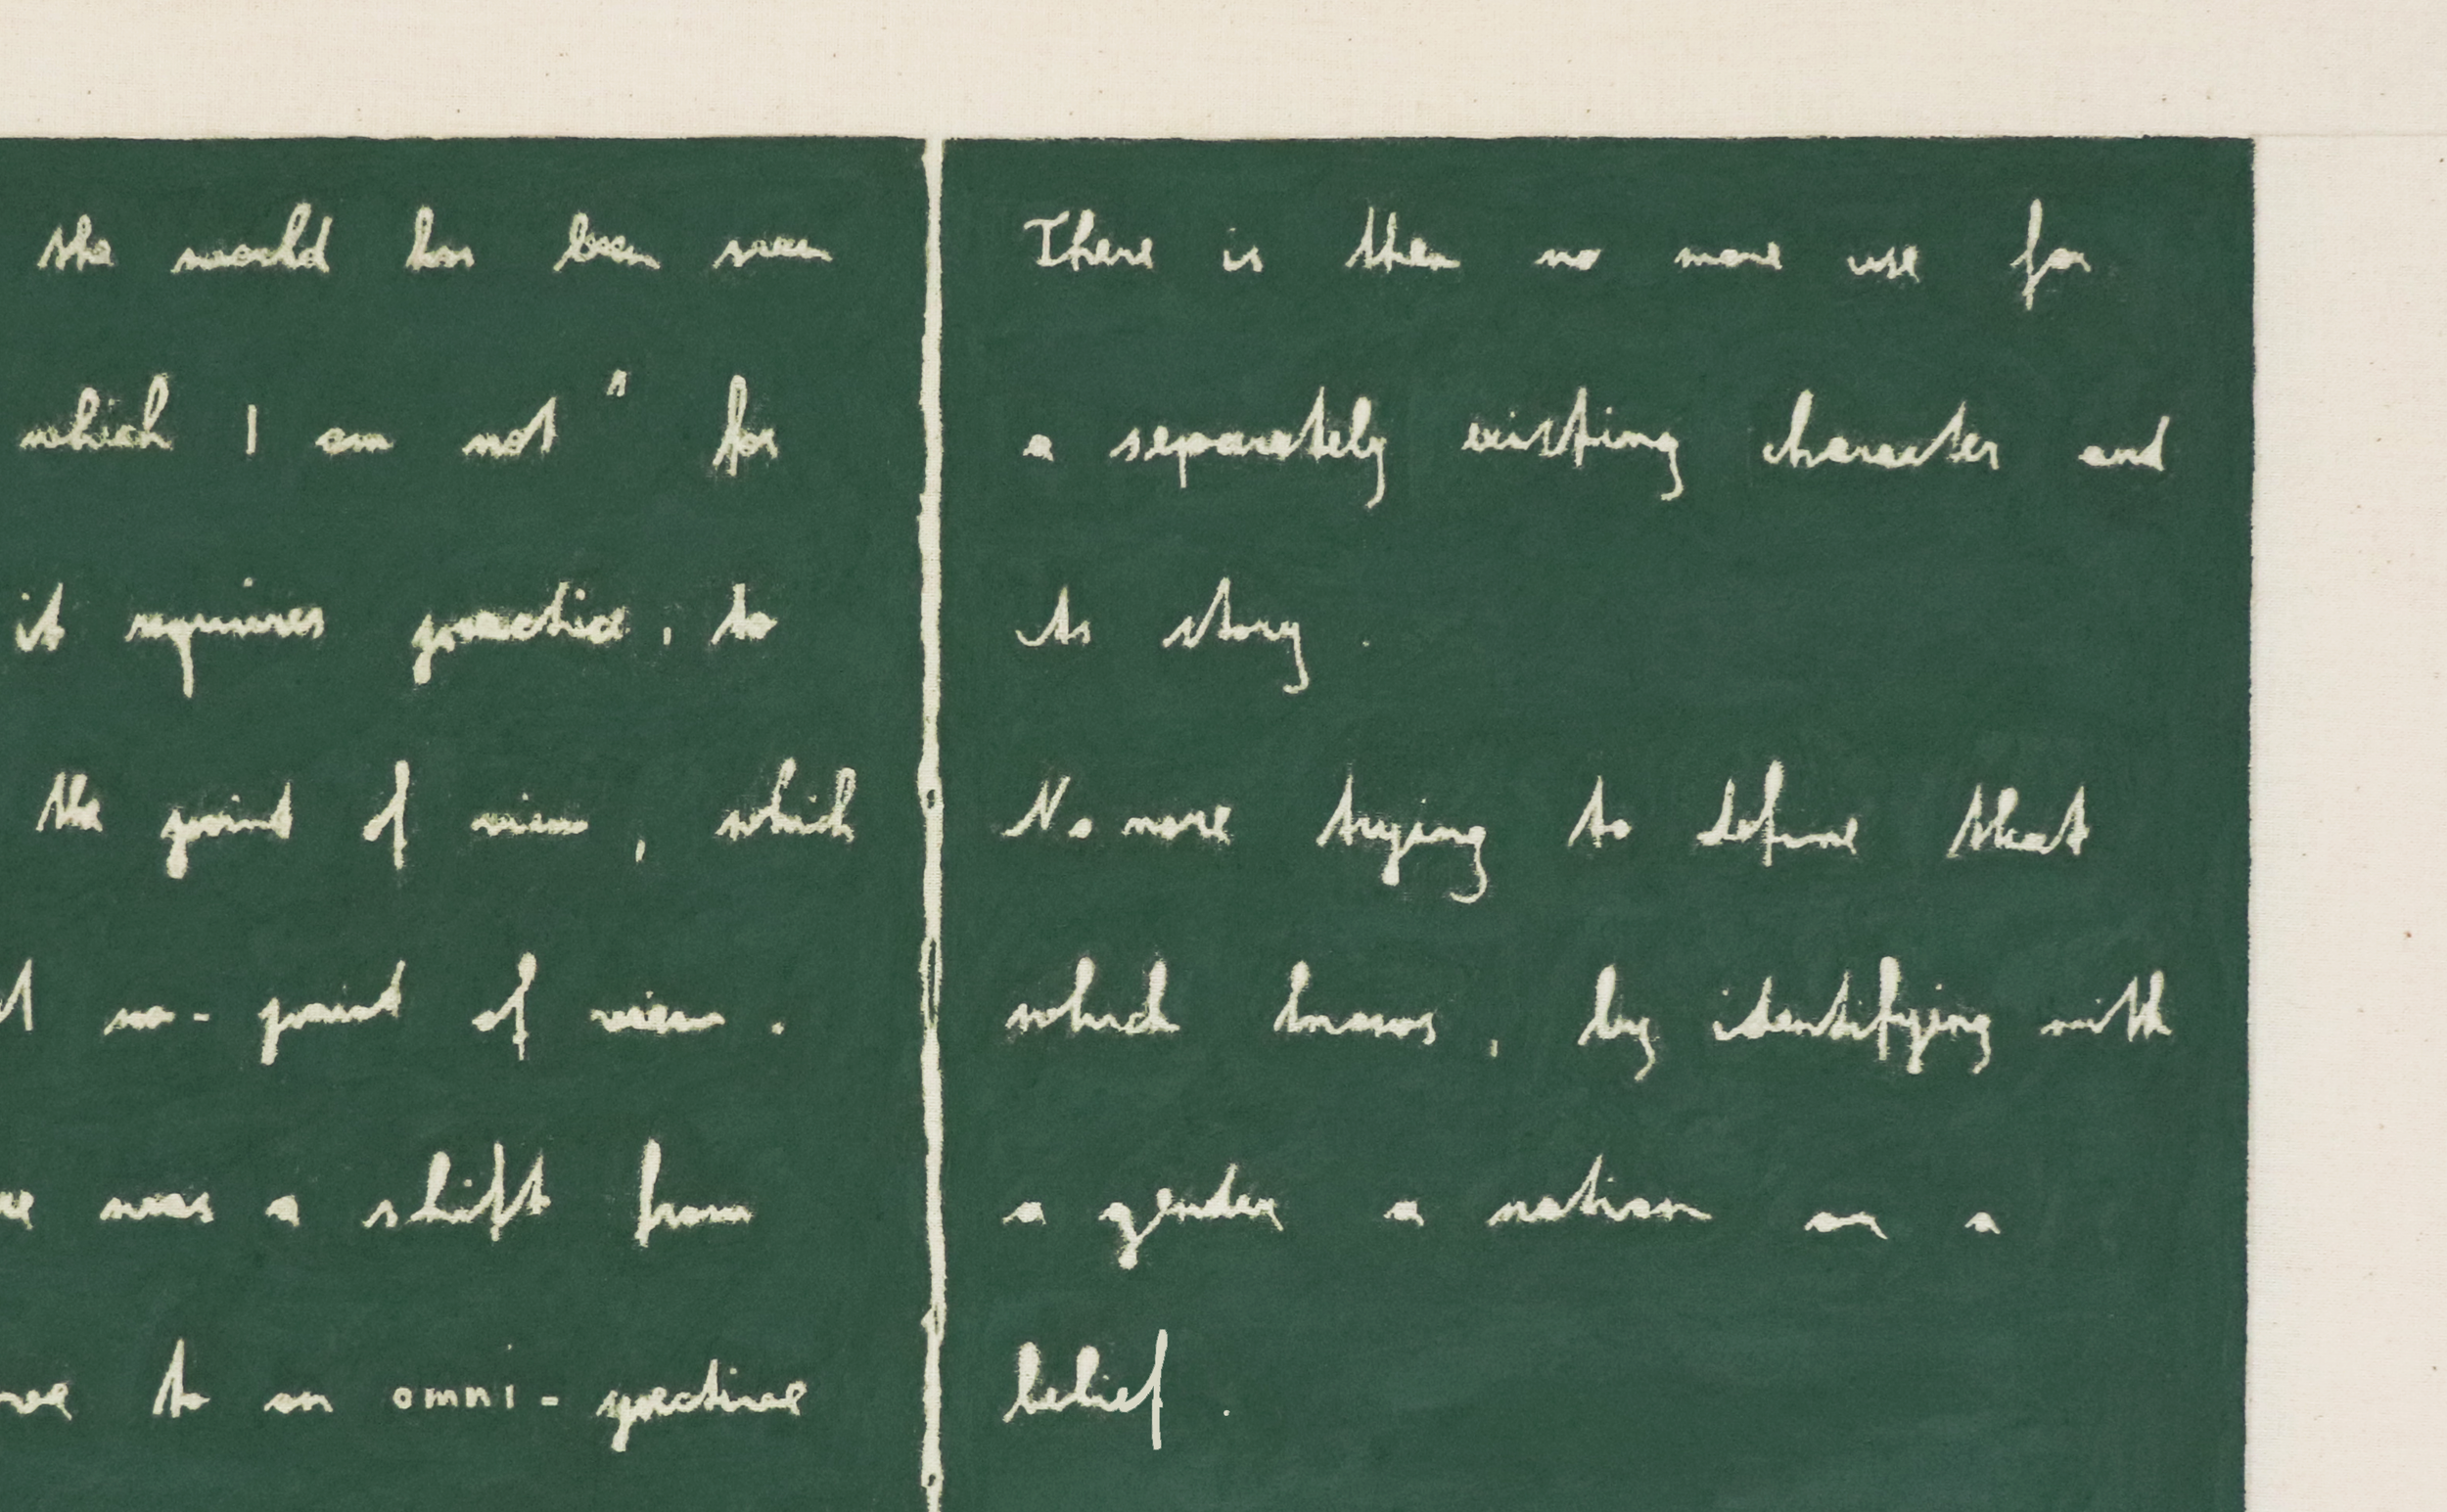 the world has been seen
which I am not" for
it requires practice, to
the point of view, which
no-point of view.
was a shift from
to an omni-spective
There is then no more use for
a separately existing character and
its story.
No more trying to define that
which knows, by identifying with
a gender a nation or a
belief.